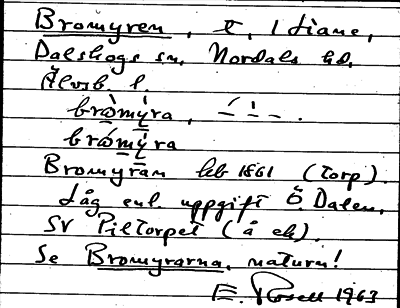 Bromyren, t, Idiane,
Dalskogs sn, Nordals hd,
Älvsb. l.
bròmýra,
brómýra
Bromyran hfb 1861 (Torp).
Låg enl. uppgift Ö. Dalen,
SV Piltorpet (å ek).
Se Bromyrarna, naturn!
E. Rosell 1963